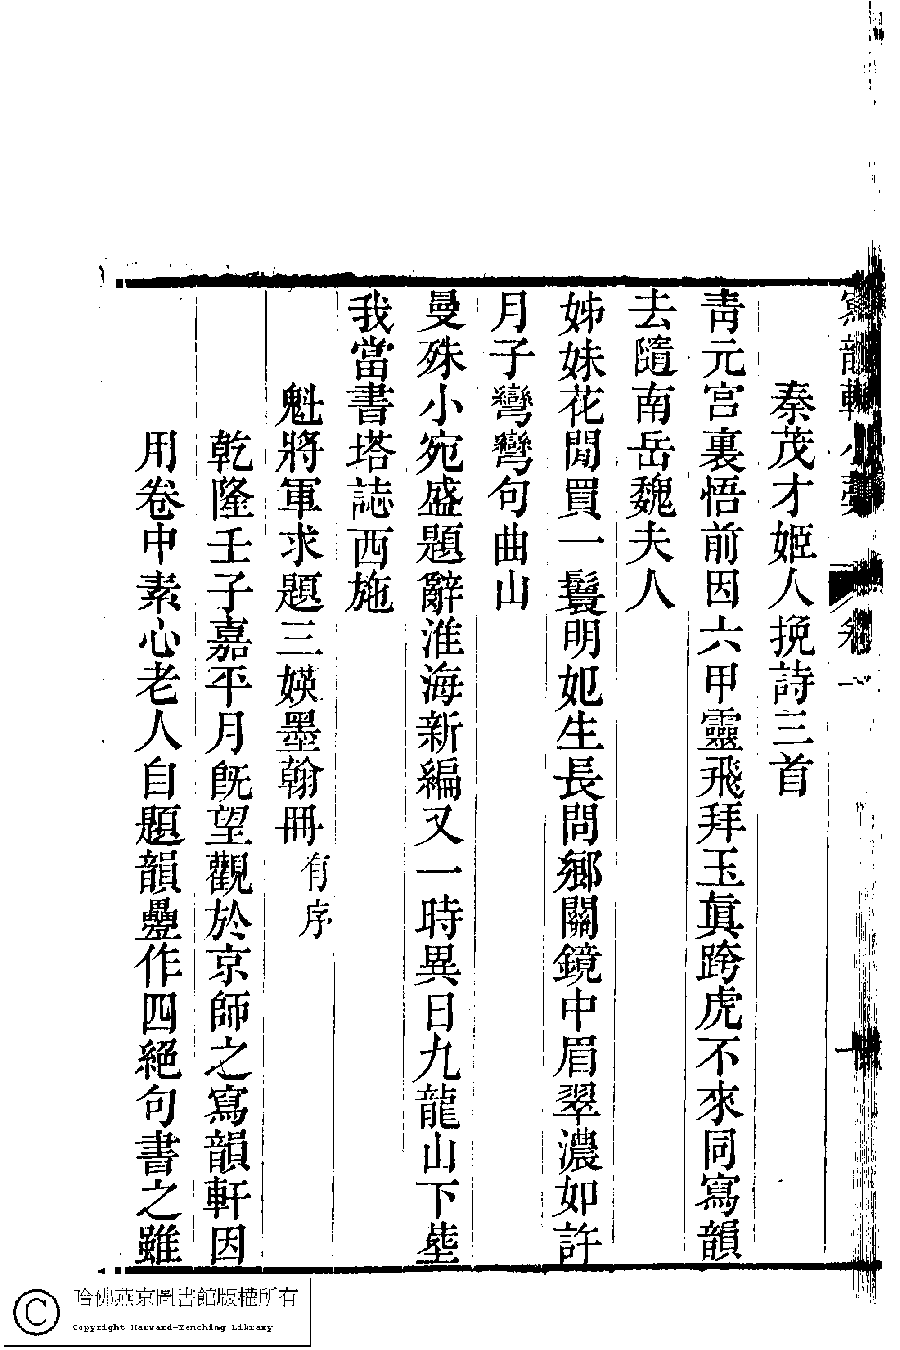 寫韻軒小藁 卷一
秦茂才姬人挽詩三首
靑元宮裏悟前因六甲靈飛拜玉眞跨虎不來同寫韻
去隨南岳魏夫人
姊妹花閒買一鬟明妃生長問鄉關鏡中眉翠濃如許
月子彎彎句曲山
曼殊小宛盛題辭淮海新編又一時異日九龍山下塋
我當書塔誌西施
魁將軍求題三媖墨翰冊有序
乾隆壬子嘉平月旣望觀於京師之寫韻軒因
用卷中素心老人自題韻疊作四絕句書之雖
哈佛燕京圖書館版權所有
Copyright Harvard-Yenching Library